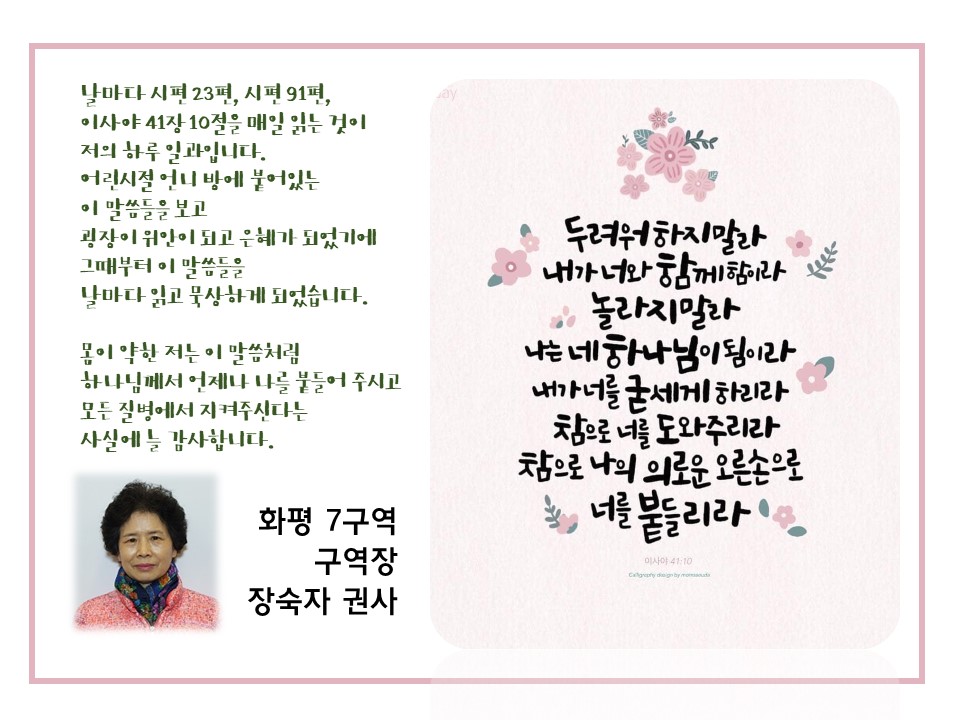 날마다 시편 23편, 시편 91편,
이사야 41장 10절을 매일 읽는 것이
저의 하루 일과입니다.
어린시절 언니 방에 붙어있는
이 말씀들을 보고
굉장히 위안이 되고 은혜가 되었기에
그때부터 이 말씀들을
날마다 읽고 묵상하게 되었습니다.
몸이 약한 저는 이 말씀처럼
하나님께서 언제나 나를 붙들어 주시고
모든 질병에서 지켜주신다는
사실에 늘 감사합니다.
화평 7구역
구역장
장숙자 권사
두려워 하지말라
내가 너와 함께 함이라
놀라지말라
나는 네 하나님이 됨이라
내가 너를 굳세게 하리라
참으로 너를 도와주리라
참으로 나의 의로운 오른손으로
너를 붙들리라
이사야 41:10
Calligraphy design by